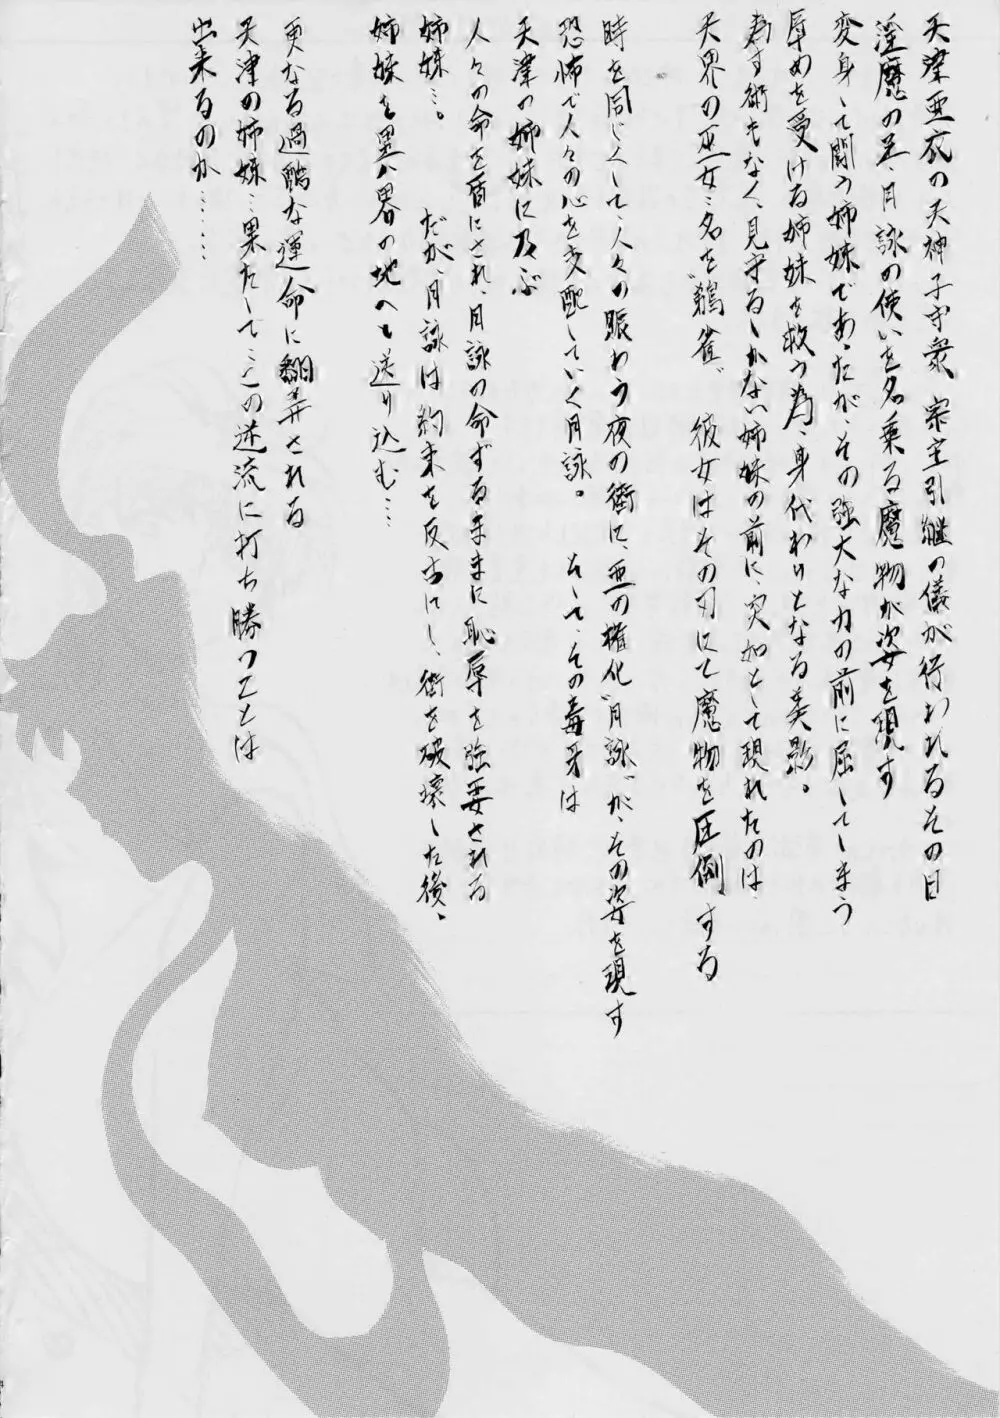 天津亜衣の天神子守衆 宗主引継の儀が行われるその日
淫魔の王、月詠の使いを名乗る魔物が姿を現す
変身して闘う姉妹であったが、その強大な力の前に屈してしまう
辱めを受ける姉妹を救う為、身代わりとなる美影。
為す術もなく、見守るしかない姉妹の前に、突如として現れたのは
天界の巫女…名を〝鵺雀〟 彼女はその刃にて魔物を圧倒する
時を同じくして、人々の賑わう夜の街に、悪の権化〝月詠〟が、その姿を現す
恐怖で人々の心を支配していく月詠。 そして、その毒牙は
天津の姉妹に及ぶ
人々の命を盾にされ、月詠の命ずるままに恥辱を強要される
姉妹…。 だが、月詠は約束を反古にし、街を破壊した後、
姉妹を異界の地へと送り込む…
更なる過酷な運命に翻弄される
天津の姉妹…果たして…この逆流に打ち勝つことは
出来るのか……